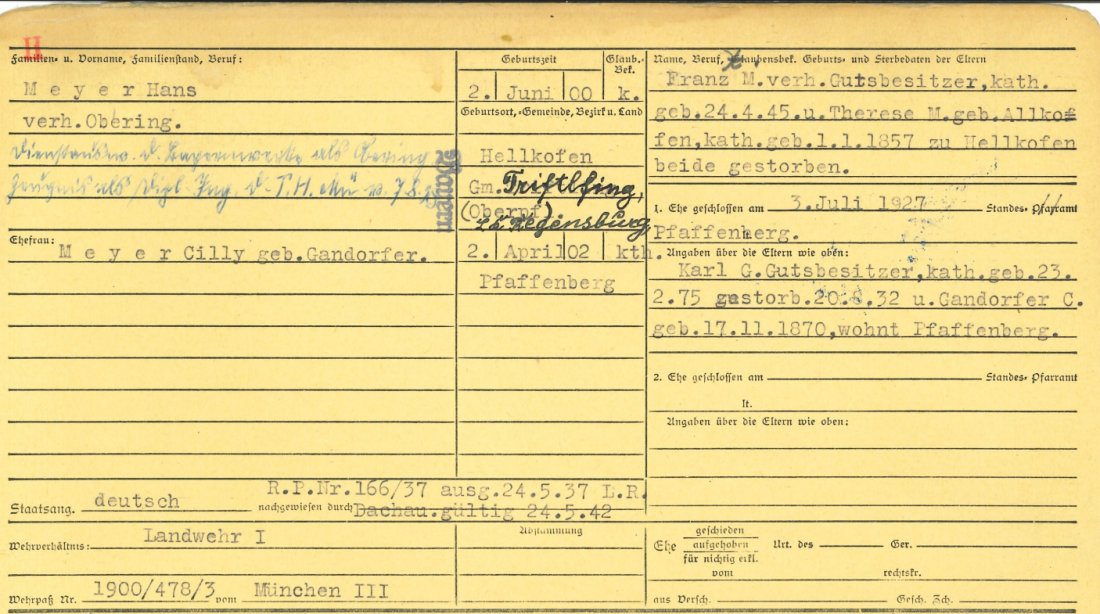 H
Familien- u. Vorname, Familienstand, Beruf:
M e y e r Hans
verh.Obering.
Dienstausw. d. Bayernwerke als Obering
Zeugnis als Dipl. Ing. d. T.H. Mü v.
Ehefrau:
M e y e r Cilly geb.Gandorfer.
Geburtszeit
Glaub.-Bek.
2. Juni 00 k.
Geburtsort, Gemeinde, Bezirk u. Land
Hellkofen
Gm. Triftlfing,
(Oberpf).
L.A. Regensburg
Bayern
2. April 02 kth.
Pfaffenberg
Name, Beruf, Glaubensbek. Geburts- und Sterbedaten der Eltern
Franz M.verh.Gutsbesitzer,kath.
geb.24.4.45.u.Therese M.geb.Allkof
fen,kath.geb.1.1.1857 zu Hellkofen
beide gestorben.
1. Ehe geschlossen am 3.Juli 1927 Standes- Pfarramt
Pfaffenberg.
Angaben über die Eltern wie oben:
Karl G.Gutsbesitzer,kath.geb.23.
2.75 gestorb.20.8.32 u.Gandorfer C.
geb.17.11.1870,wohnt Pfaffenberg.
2. Ehe geschlossen am Standes- Pfarramt
lt.
Angaben über die Eltern wie oben:
Staatsang. deutsch
R.P.Nr.166/37 ausg.24.5.37 L.R.
nachgewiesen durch Dachau.gültig 24.5.42
Wehrverhältnis: Landwehr I
Wehrpaß Nr. 1900/478/3 vom München III
Abstammung
Ehe
geschieden
aufgehoben
für nichtig erkl.
vom
Urt. des Ger.
rechtskr.
aus Versch. Gesch. Zch.